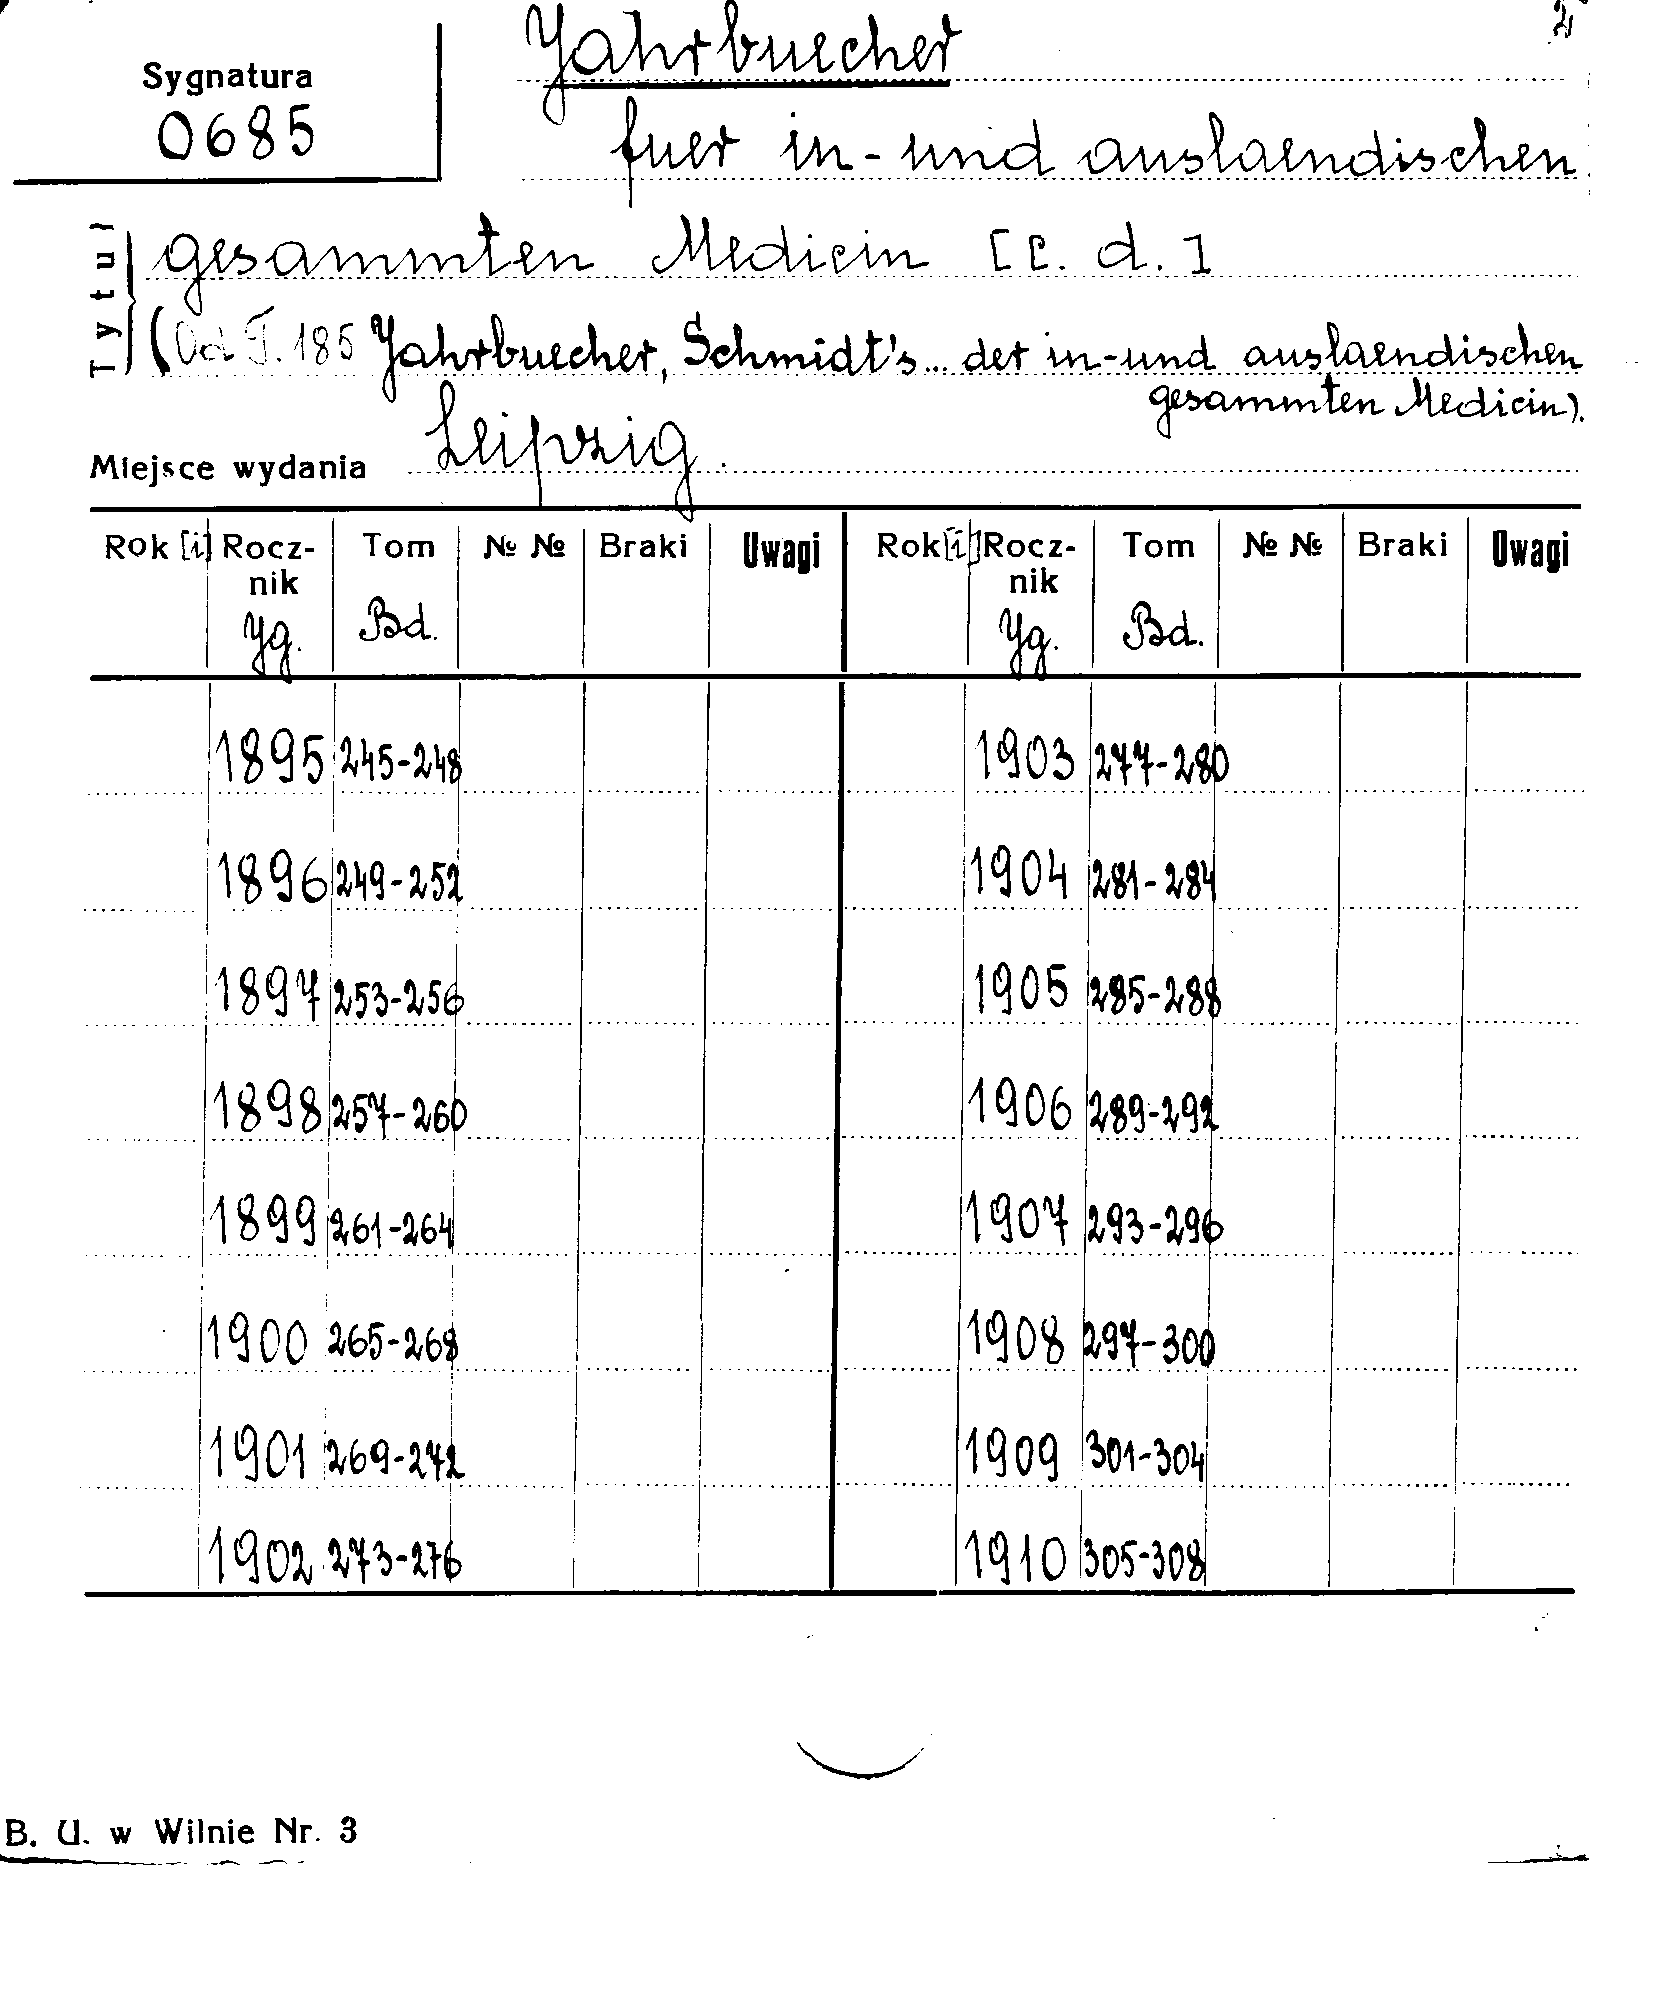 2
Jahrbuecher
Sygnatura
0685
fuer in-und auslaendischen
Tytuł
gesammten Medicin [C. d.]
(Od T. 185 Jahrbuecher, Schmidt's... der in-und auslaendischen
gesammten Medicin).
Miejsce wydania Leipzig.
Rok [i] Rocz- Tom № № Braki Uwagi Rok [i] Rocz- Tom № № Braki Uwagi
nik nik
Jg. Bd. Jg. Bd.
1895 245-248 1903 277-280
1896 249-252 1904 281-284
1897 253-256 1905 285-288
1898 257-260 1906 289-292
1899 261-264 1907 293-296
1900 265-268 1908 297-300
1901 269-272 1909 301-304
1902 273-276 1910 305-308
B. U. w Wilnie Nr. 3